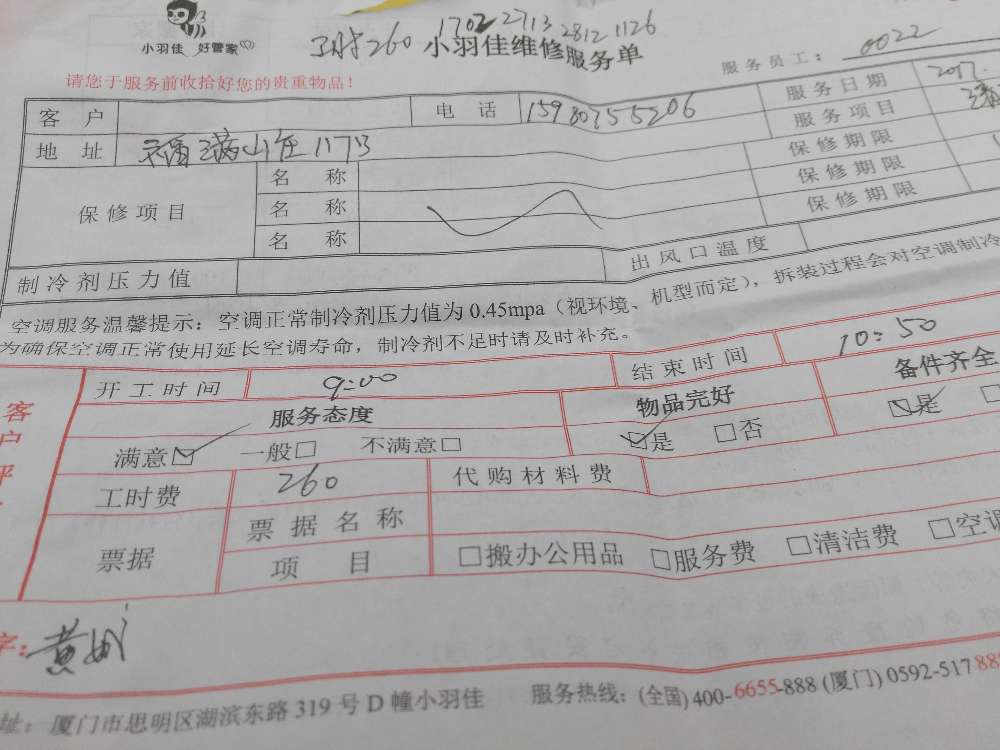 小羽佳 好管家
1702 2713 2812 1126
260 小羽佳维修服务单
服务员工：0022
请您于服务前收拾好您的贵重物品！
客 户 电 话 服务日期 2017.
服务项目
地 址 满山庄1173
保修项目 名 称 保修期限
名 称 保修期限
名 称 保修期限
制冷剂压力值 出风口温度
空调服务温馨提示：空调正常制冷剂压力值为 0.45mpa（视环境、机型而定），拆装过程会对空调制冷
为确保空调正常使用延长空调寿命，制冷剂不足时请及时补充。
客户评
开工时间 9:00 结束时间 10:50
服务态度 物品完好 备件齐全
满意☑ 一般□ 不满意□ ☑是 □否 ☑是 □
工时费 260 代购材料费
票据 票据名称
项 目 □搬办公用品 □服务费 □清洁费 □空调
字：黄
址：厦门市思明区湖滨东路 319 号 D 幢小羽佳 服务热线：(全国) 400-6655-888 (厦门) 0592-517888